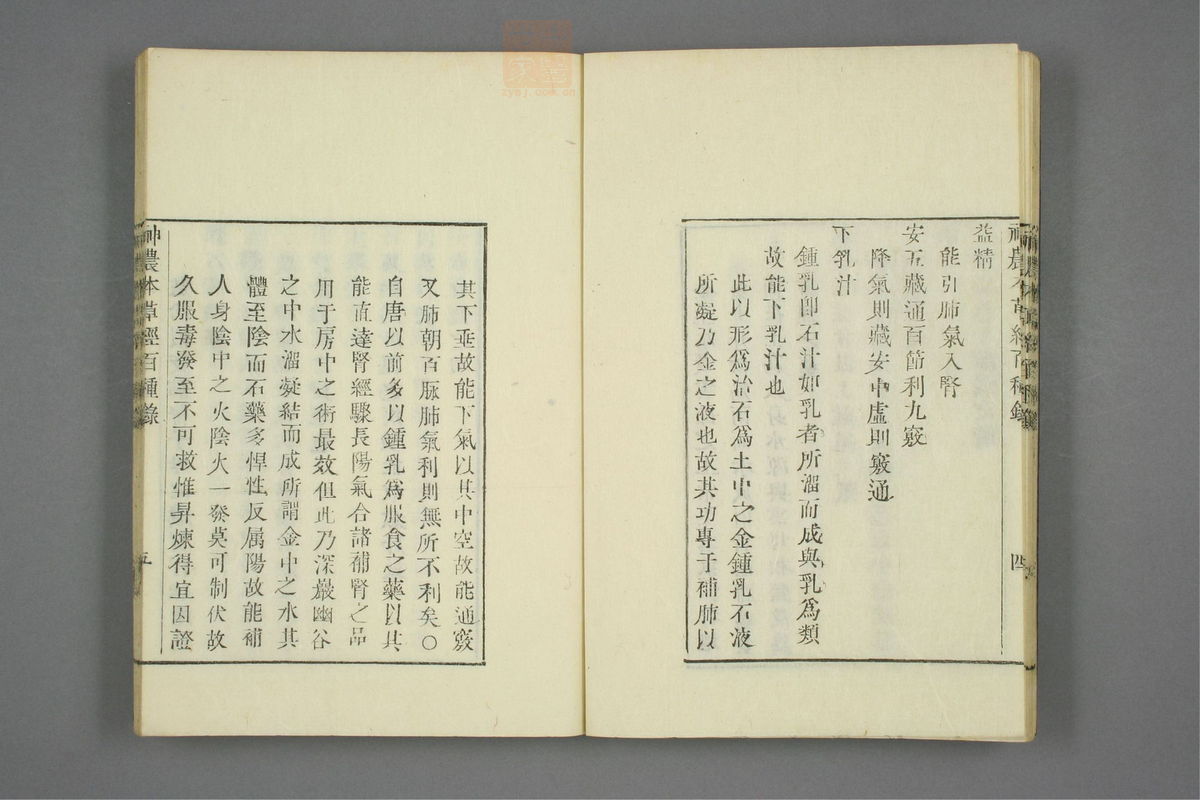 神農本草經百種錄
四
益精
能引肺氣入腎
安五藏通百節利九竅
降氣則藏安中虛則竅通
下乳汁
鍾乳卽石汁如乳者所溜而成與乳爲類
故能下乳汁也
此以形爲治石爲土中之金鍾乳石液
所凝乃金之液也故其功專于補肺以
其下垂故能下氣以其中空故能通竅
又肺朝百脉肺氣利則無所不利矣〇
自唐以前多以鍾乳爲服食之藥以其
能直達腎經驟長陽氣合諸補腎之品
用于房中之術最效但此乃深巖幽谷
之中水溜凝結而成所謂金中之水其
體至陰而石藥多悍性反属陽故能補
人身陰中之火陰火一發莫可制伏故
久服毒發至不可救惟昇煉得宜因證
神農本草經百種錄
五
zysj.com.cn